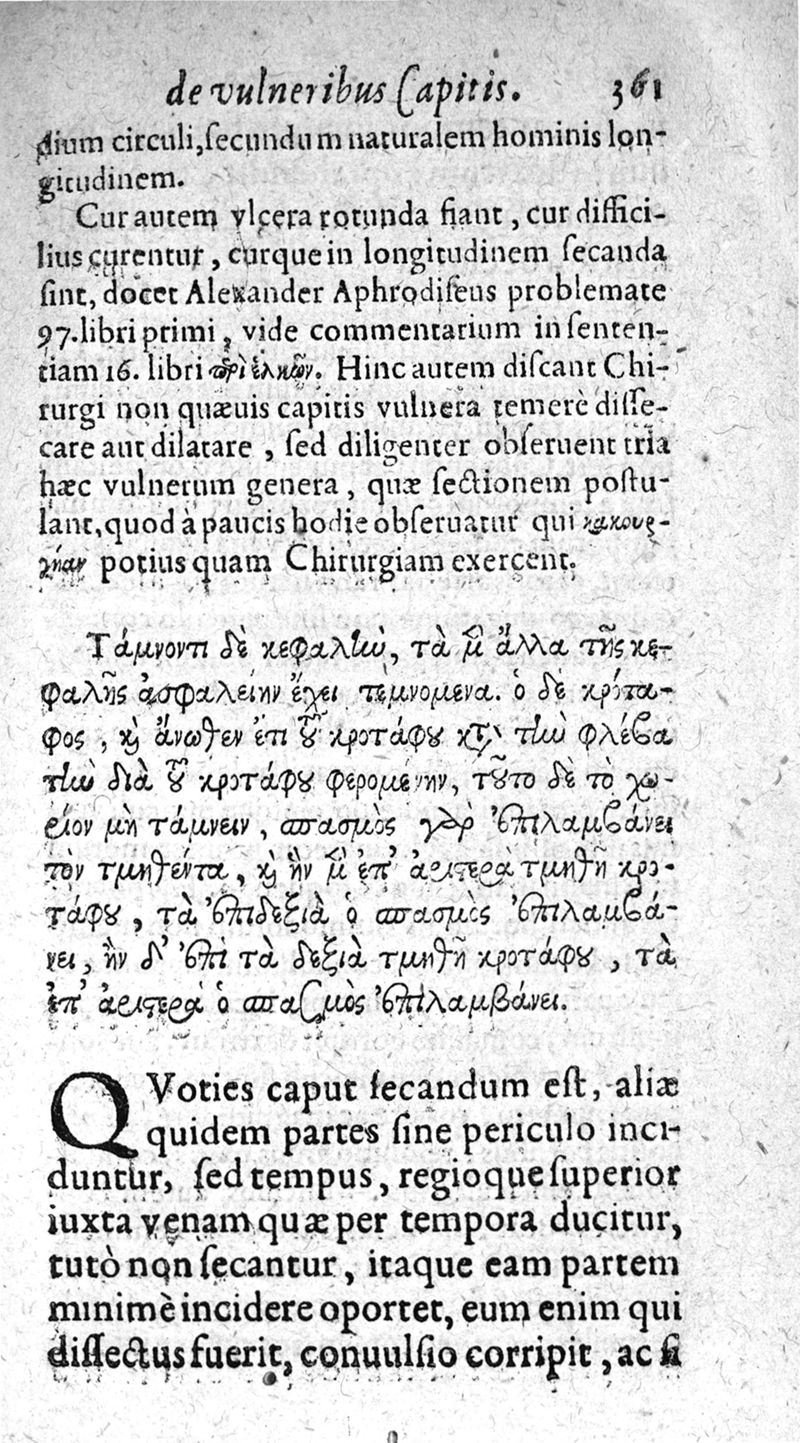 de vulneribus Capitis. 361
dium circuli, ſecundum naturalem hominis lon-
gitudinem.
Cur autem vlcera rotunda fiant, cur diffici-
lius curentur, curque in longitudinem ſecanda
ſint, docet Alexander Aphrodiſeus problemate
97. libri primi, vide commentarium in ſenten-
tiam 16. libri περὶ ἑλκῶν. Hinc autem diſcant Chi-
rurgi non quæuis capitis vulnera temerè diſſe-
care aut dilatare, ſed diligenter obſeruent tria
hæc vulnerum genera, quæ ſectionem poſtu-
lant, quod à paucis hodie obſeruatur qui κακουρ-
γίαν potius quam Chirurgiam exercent.
Τάμνοντι δὲ κεφαλὴν, τὰ μὲν ἄλλα τῆς κε-
φαλῆς ἀσφαλείην ἔχει τεμνομενα. ὁ δὲ κρότα-
φος, καὶ ἄνωθεν ἐπὶ τοῦ κροτάφου κατὰ τὴν φλέβα
τὴν διὰ τοῦ κροτάφου φερομένην, τοῦτο δὲ τὸ χω-
ρίον μὴ τάμνειν, σπασμὸς γὰρ ἐπιλαμβάνει
τὸν τμηθέντα, καὶ ἢν μὲν ἐπ' ἀριστερὰ τμηθῆ κρο-
τάφου, τὰ ἐπιδεξιὰ ὁ σπασμὸς ἐπιλαμβά-
νει, ἢν δ' ἐπὶ τὰ δεξιὰ τμηθῆ κροτάφου, τὰ
ἐπ' ἀριστερὰ ὁ σπασμὸς ἐπιλαμβάνει.
QVoties caput ſecandum eſt, aliæ
quidem partes ſine periculo inci-
duntur, ſed tempus, regioque ſuperior
iuxta venam quæ per tempora ducitur,
tutò non ſecantur, itaque eam partem
minimè incidere oportet, eum enim qui
diſſectus fuerit, conuulſio corripit, ac ſi